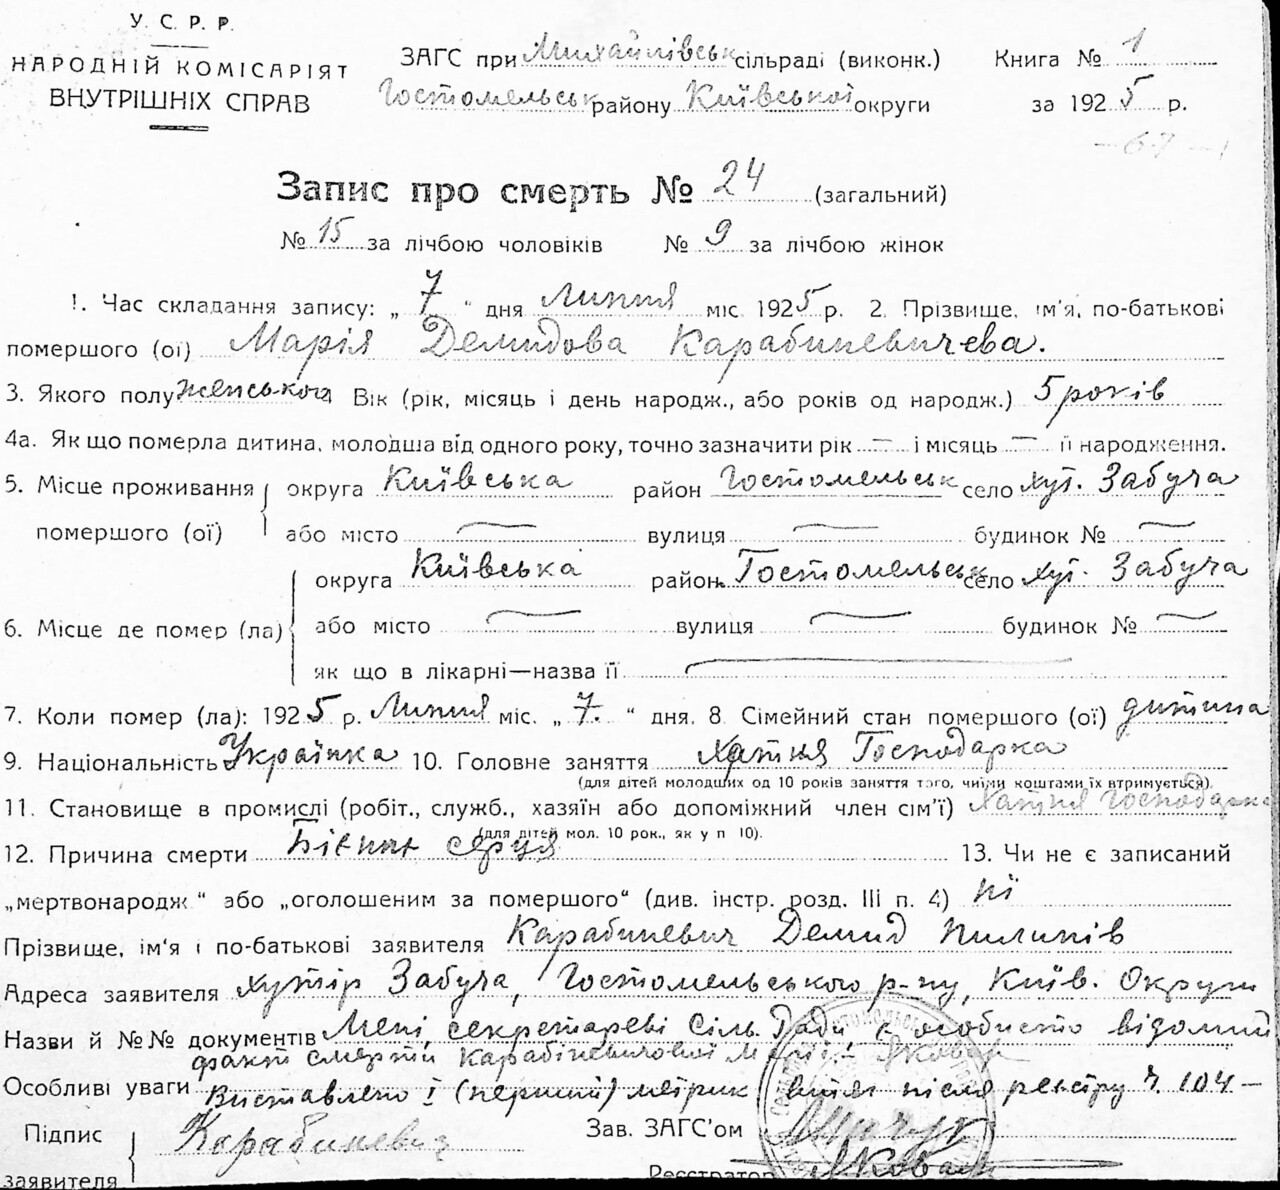 У. С. Р. Р.
НАРОДНІЙ КОМІСАРІЯТ
ВНУТРІШНІХ СПРАВ
ЗАГС при Михайлівськ сільраді (виконк.) Книга № 1
Гостомельськ району Київської округи за 1925 р.
-67-
Запис про смерть № 24 (загальний)
№ 15 за лічбою чоловіків № 9 за лічбою жінок
1. Час складання запису: „7“ дня Липня міс. 1925 р. 2. Прізвище, ім'я, по-батькові
помершого (ої) Марія Демидова Карабиневичева.
3. Якого полу женського Вік (рік, місяць і день народж., або років од народж.) 5 років
4а. Як що померла дитина, молодша від одного року, точно зазначити рік — і місяць — її народження.
5. Місце проживання округа Київська район Гостомельськ село хут. Забуча
помершого (ої) або місто — вулиця — будинок № —
округа Київська район Гостомельськ село хут. Забуча
6. Місце де помер (ла) або місто — вулиця — будинок № —
як що в лікарні—назва її —
7. Коли помер (ла): 1925 р. Липня міс. „7.“ дня. 8 Сімейний стан помершого (ої) дитина
9. Національність Українка 10. Головне заняття Хатня Господарка
(для дітей молодших од 10 років заняття того, чиїми коштами їх втримується).
11. Становище в промислі (робіт., служб., хазяїн або допоміжний член сім'ї) Хатня господарка
(для дітей мол. 10 рок., як у п 10).
12. Причина смерти серця 13. Чи не є записаний
„мертвонародж“ або „оголошеним за помершого“ (див. інстр. розд. III п. 4) ні
Прізвище, ім'я і по-батькові заявителя Карабиневич Демид Пилипів
Адреса заявителя хутір Забуча, Гостомельського р-ну, Київ. Округи
Назви й №№ документів Мені, секретареві Сіль. Ради особисто відомий
факт смерти Карабіневичової Марії. Яковак
Особливі уваги Виставлено 1 (перший) метрик. витяг після реєстру ч. 104 —
Підпис заявителя Карабиневич
Зав. ЗАГС'ом
Реєстратор